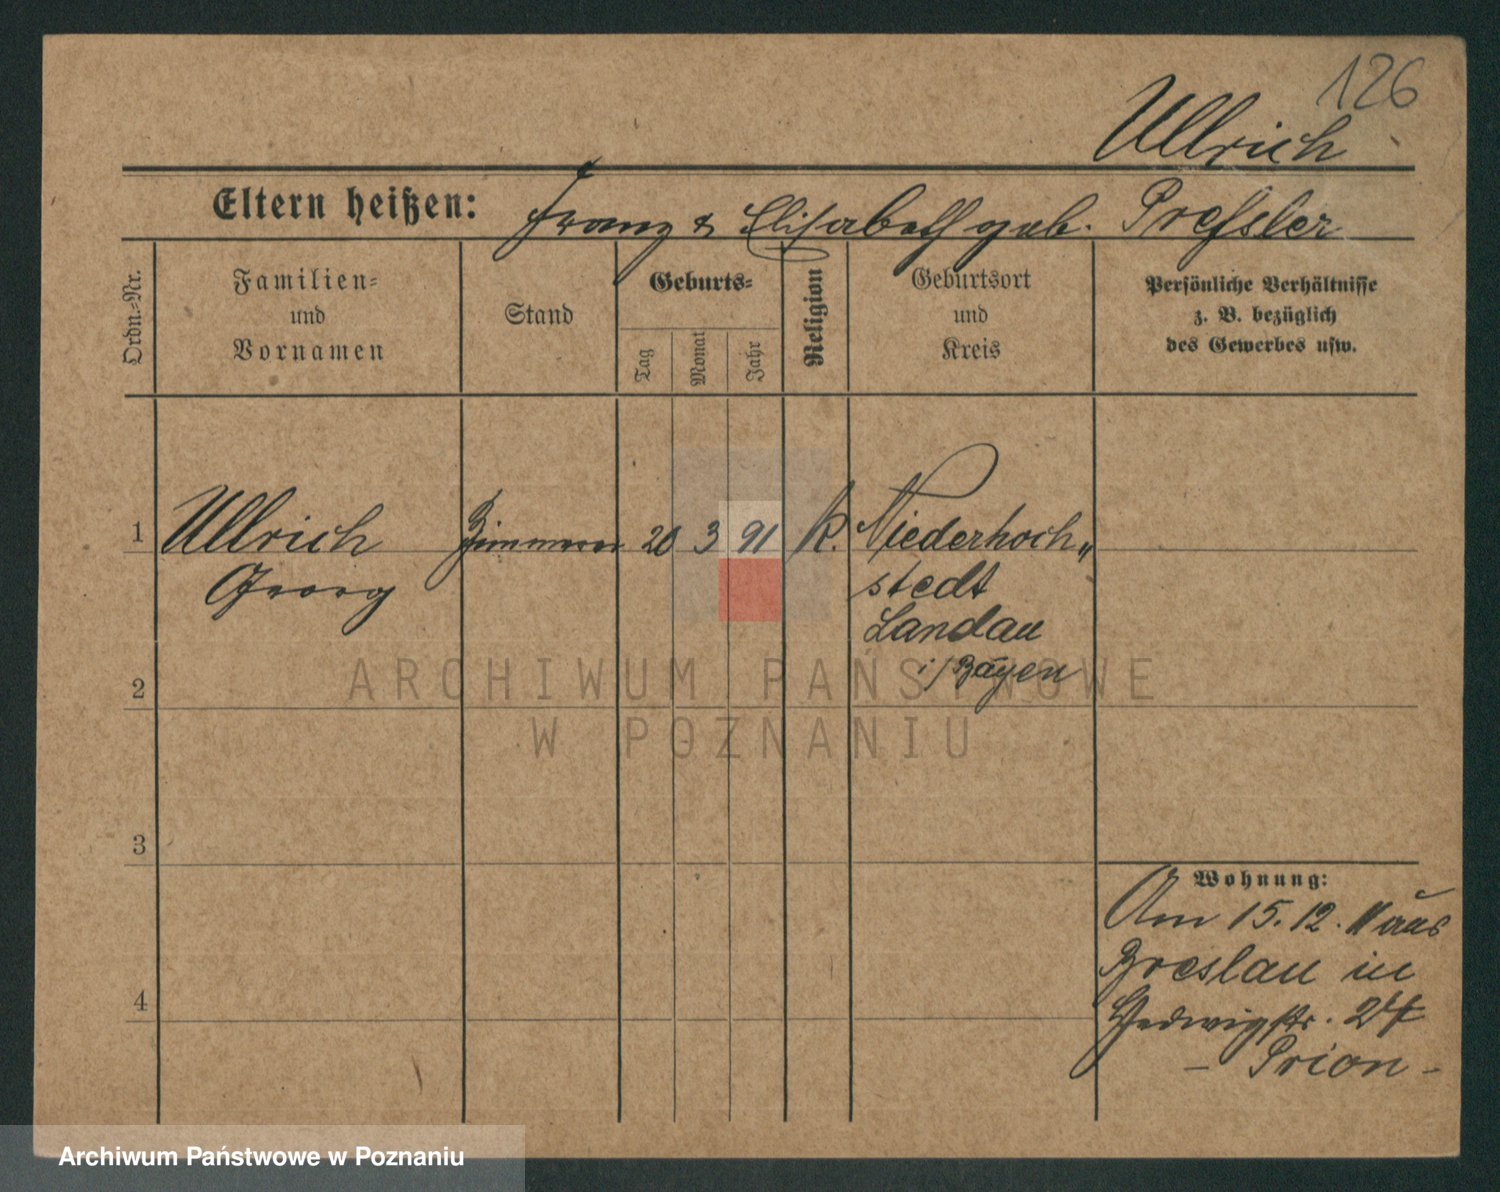 126
Ullrich
Eltern heißen: Franz & Elisabeth geb. Preßsler
Ordn.-Nr.
Familien- und Vornamen
Stand
Geburts-
Tag
Monat
Jahr
Religion
Geburtsort und Kreis
Persönliche Verhältnisse
z. B. bezüglich
des Gewerbes usw.
1 Ullrich Zimmerer 20 3 91 K. Niederhoch„
Georg stedt
Landau
i/Bayen
2
3
Wohnung:
Am 15.12. 11 aus
Breslau in
4
Hedwigstr. 24
- Prion -
ARCHIWUM PAŃSTWOWE
W POZNANIU
Archiwum Państwowe w Poznaniu